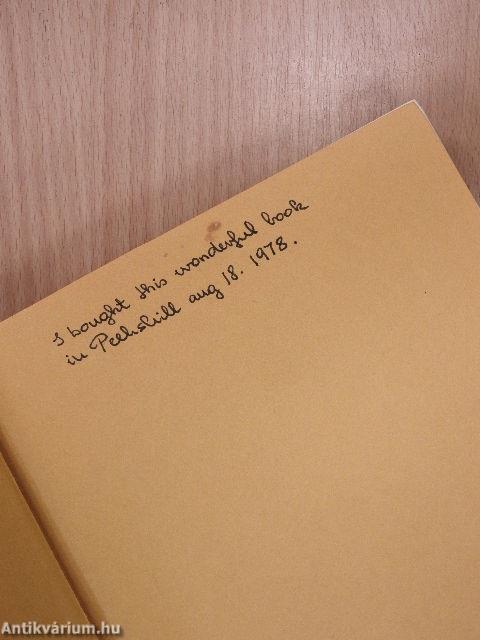 I bought this wonderful book
in Peekskill aug 18. 1978.
Antikvárium.hu